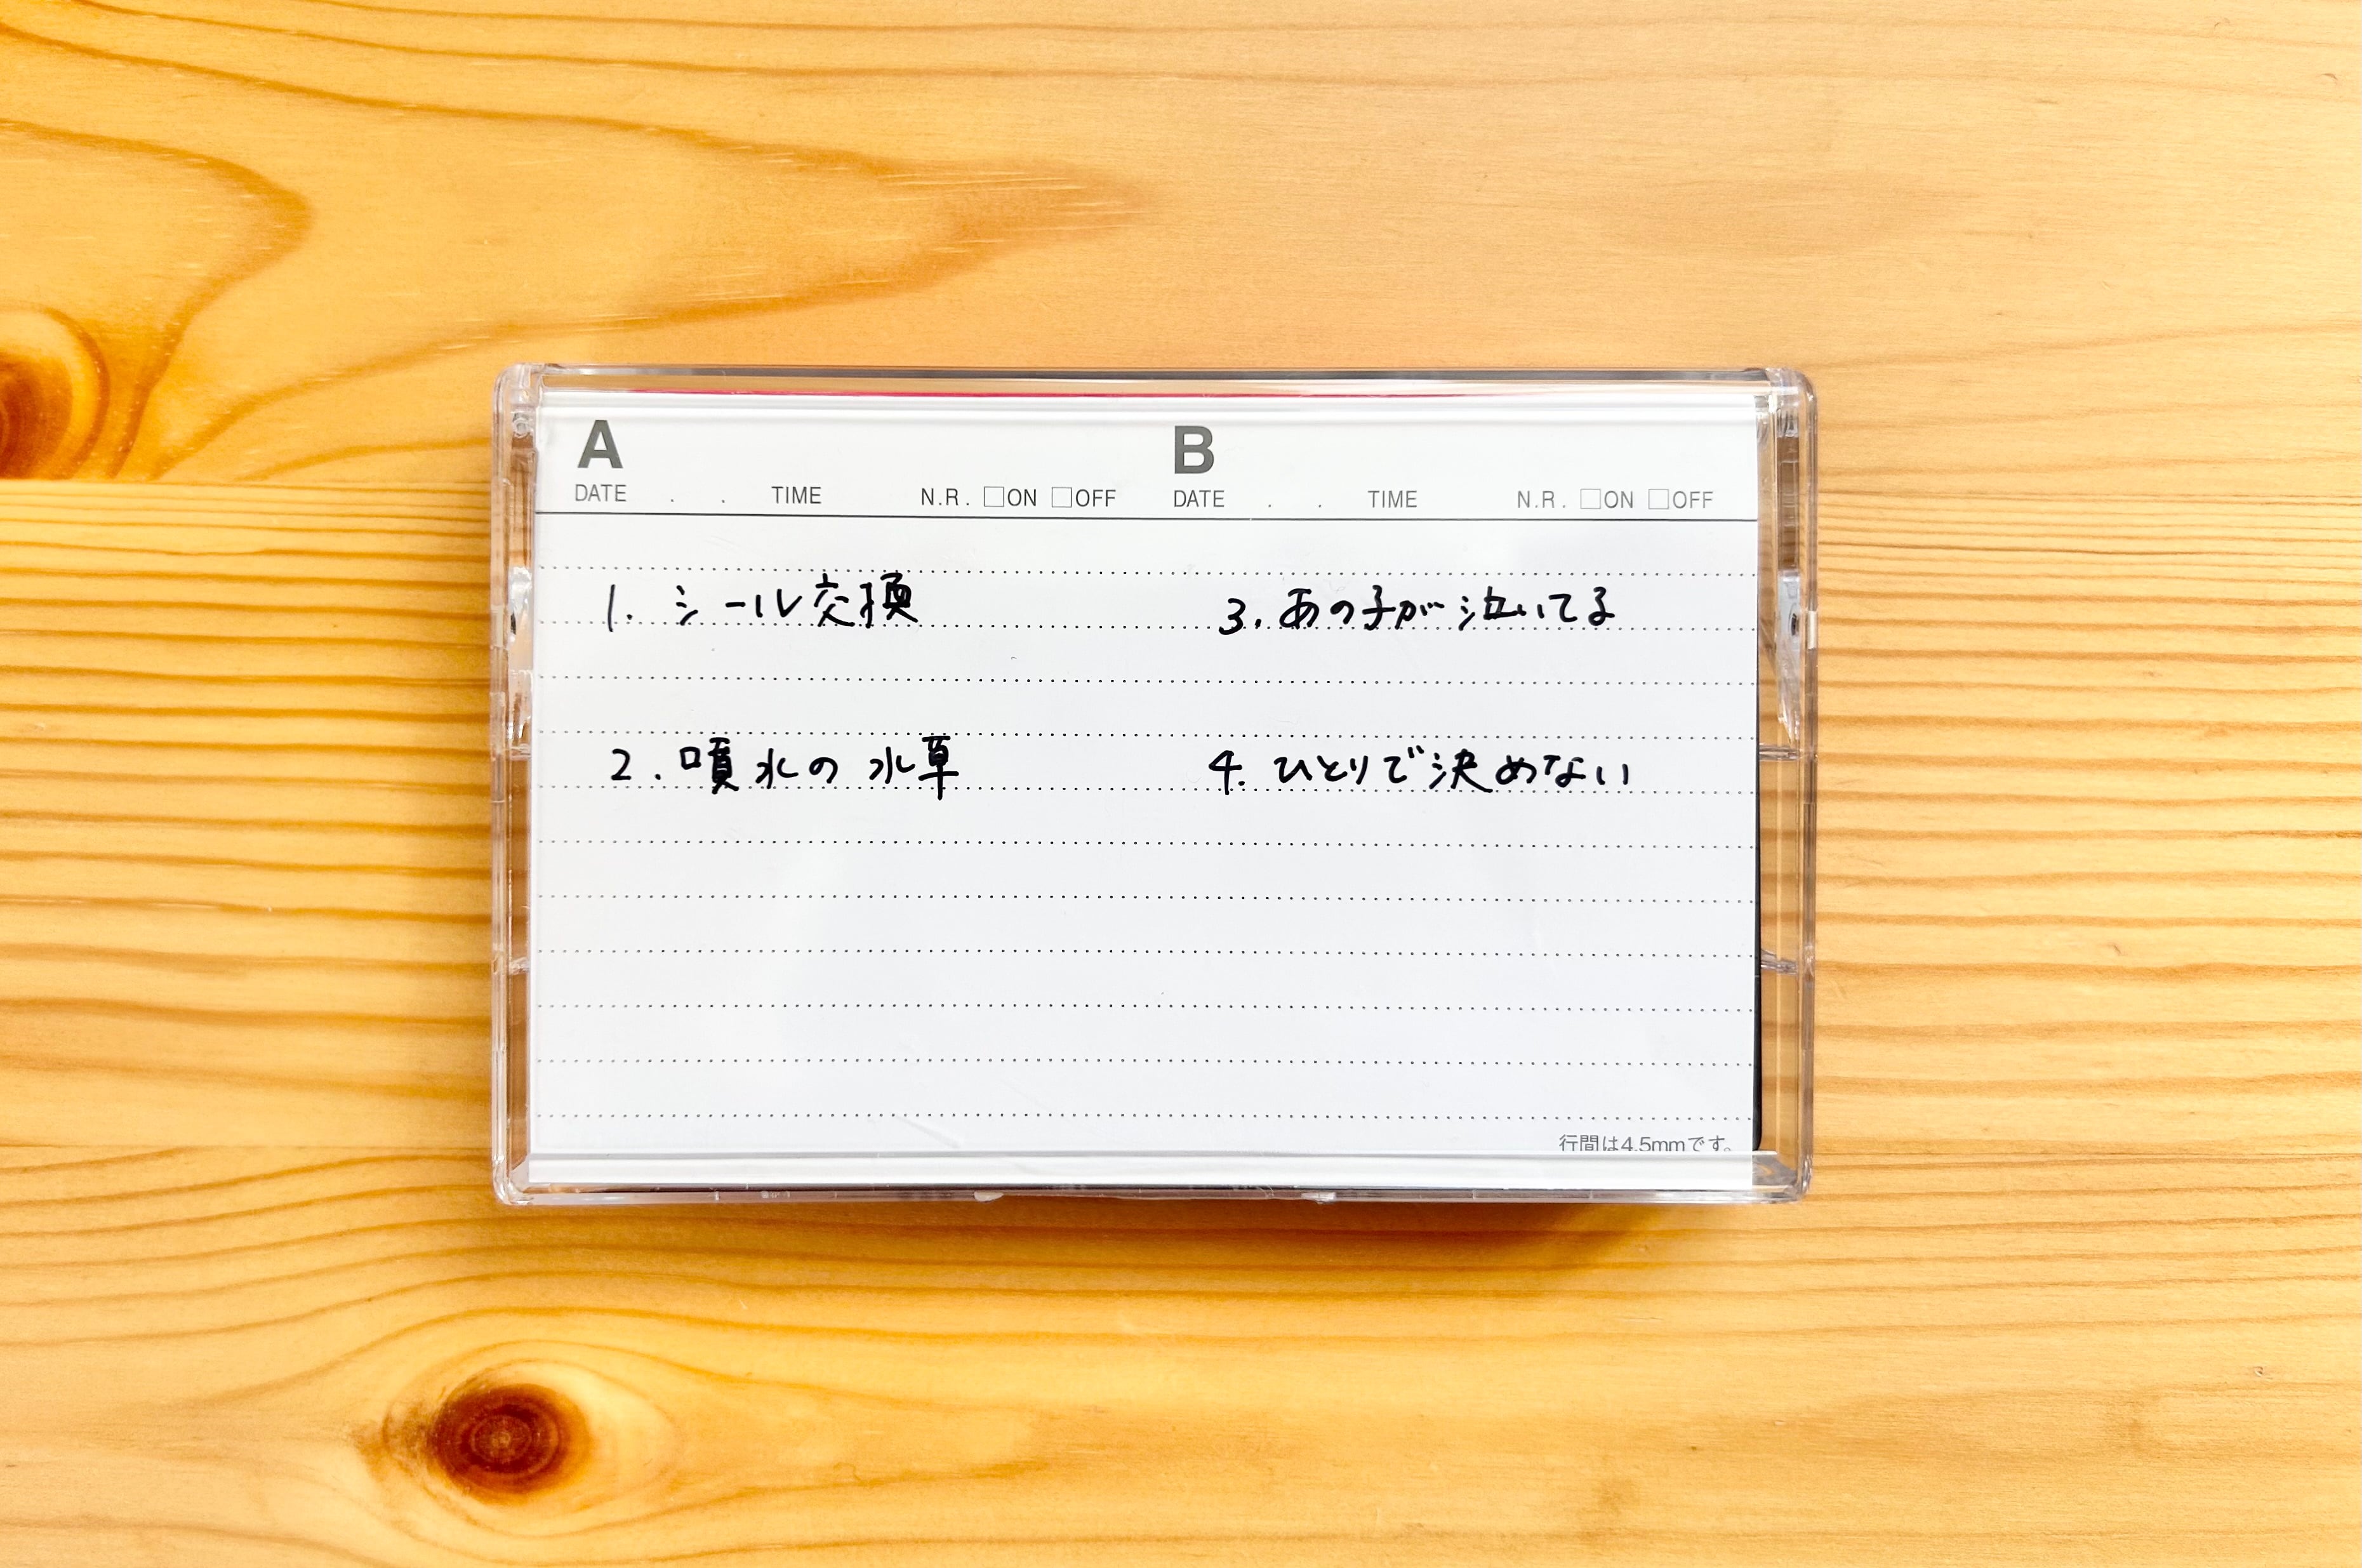 A
DATE . . TIME N.R. □ON □OFF
1. シール交換
2. 噴水の水草
B
DATE . . TIME N.R. □ON □OFF
3. あの子が泣いてる
4. ひとりで決めない
行間は4.5mmです。